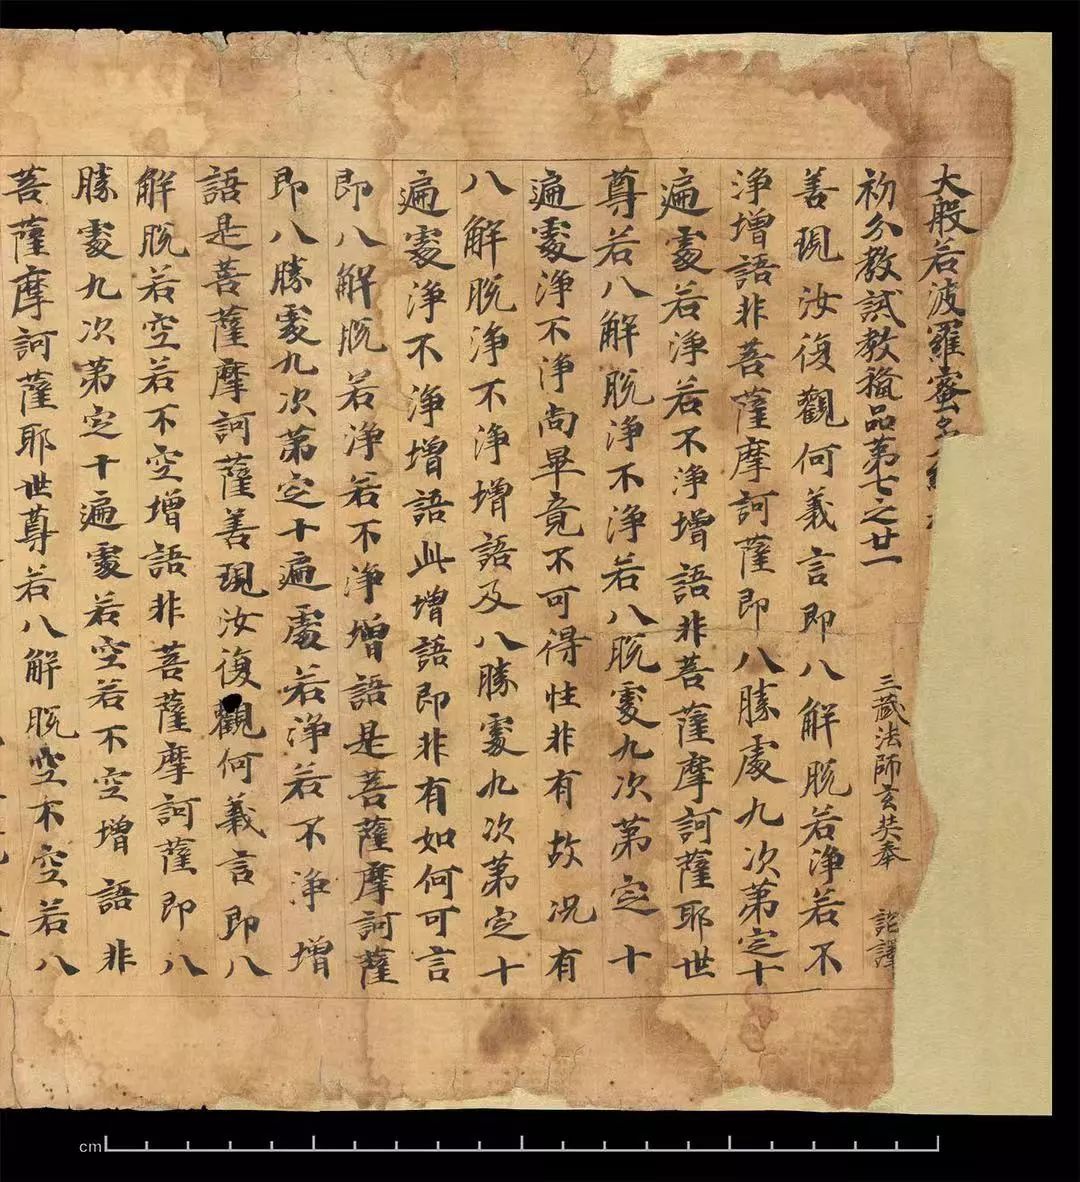 大般若波羅蜜多
初分教誡教授品第七之廿一 三藏法師玄奘奉 詔譯
善現汝復觀何義言即八解脫若淨若不
淨增語非菩薩摩訶薩即八勝處九次第定十
遍處若淨若不淨增語非菩薩摩訶薩耶世
尊若八解脫淨不淨若八脫處九次第定十
遍處淨不淨尚畢竟不可得性非有故況有
八解脫淨不淨增語及八勝處九次第定十
遍處淨不淨增語此增語即非有如何可言
即八解脫若淨若不淨增語是菩薩摩訶薩
即八勝處九次第定十遍處若淨若不淨增
語是菩薩摩訶薩善現汝復觀何義言即八
解脫若空若不空增語非菩薩摩訶薩即八
勝處九次第定十遍處若空若不空增語非
菩薩摩訶薩耶世尊若八解脫空不空若八
cm